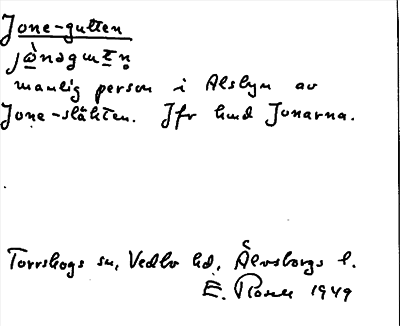 Jone-gutten
manlig person i Alsbyn av
Jone-släkten. Jfr hmd Jonarna.
Torrskogs sn, Vedbo hd, Älvsborgs l.
E. 1949